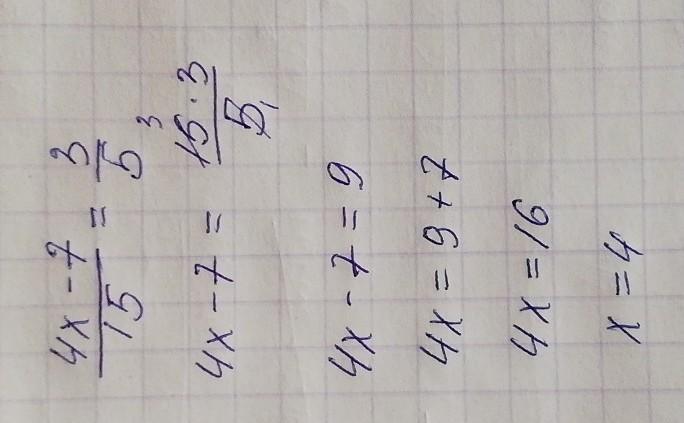 (4x-7)/15 = 3/5
4x-7 = (15³·3)/5₁
4x-7=9
4x=9+7
4x=16
x=4